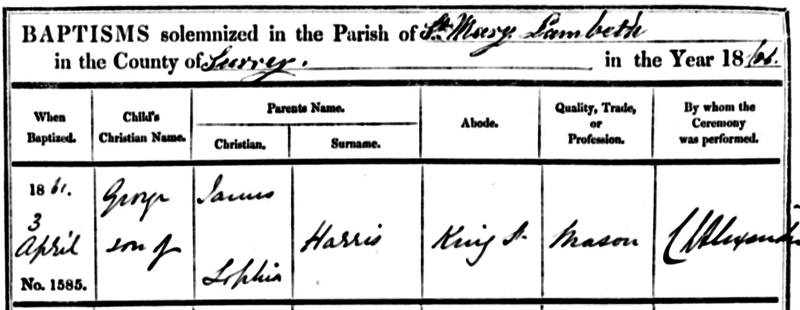 BAPTISMS solemnized in the Parish of St. Mary Lambeth
in the County of Surrey. in the Year 1861.
When Baptized.
Child's Christian Name.
Parents Name.
Christian.
Surname.
Abode.
Quality, Trade, or Profession.
By whom the Ceremony was performed.
1861.
3
April
No. 1585.
George
son of
James
Sophia
Harris
King St
Mason